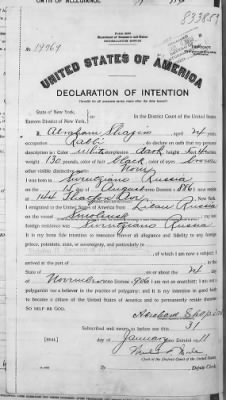 OATH OF ALLEGIANCE
83385
No. 19761
UNITED STATES OF AMERICA
DECLARATION OF INTENTION
State of New York,
Eastern District of New York,
In the District Court of the United States
I, Abraham Shapiro, aged 24 years,
occupation Rabbi, do declare on oath that my personal
description is: Color white, complexion dark, height
130 pounds, color of hair black, color of eyes brown
other visible distinctive marks None
I was born in Swentziano Russia
on the day of August, anno Domini 1886; I now reside
at 144 Thatford Ave
I emigrated to the United States of America from Libau Russia
on the vessel Smolensk; my last
foreign residence was Swentziano Russia
It is my bona fide intention to renounce forever all allegiance and fidelity to any foreign
prince, potentate, state, or sovereignty, and particularly to
, of which I am now a subject; I
arrived at the port of, in the
State of on or about the 24 day
of November, anno Domini 1906; I am not an anarchist; I am not a
polygamist nor a believer in the practice of polygamy; and it is my intention in good faith
to become a citizen of the United States of America and to permanently reside therein:
SO HELP ME GOD.
Abraham Shapiro
Subscribed and sworn to before me this 31
[SEAL] day of January, anno Domini 1911
Clerk of the District Court of the United States.
Deputy Clerk.